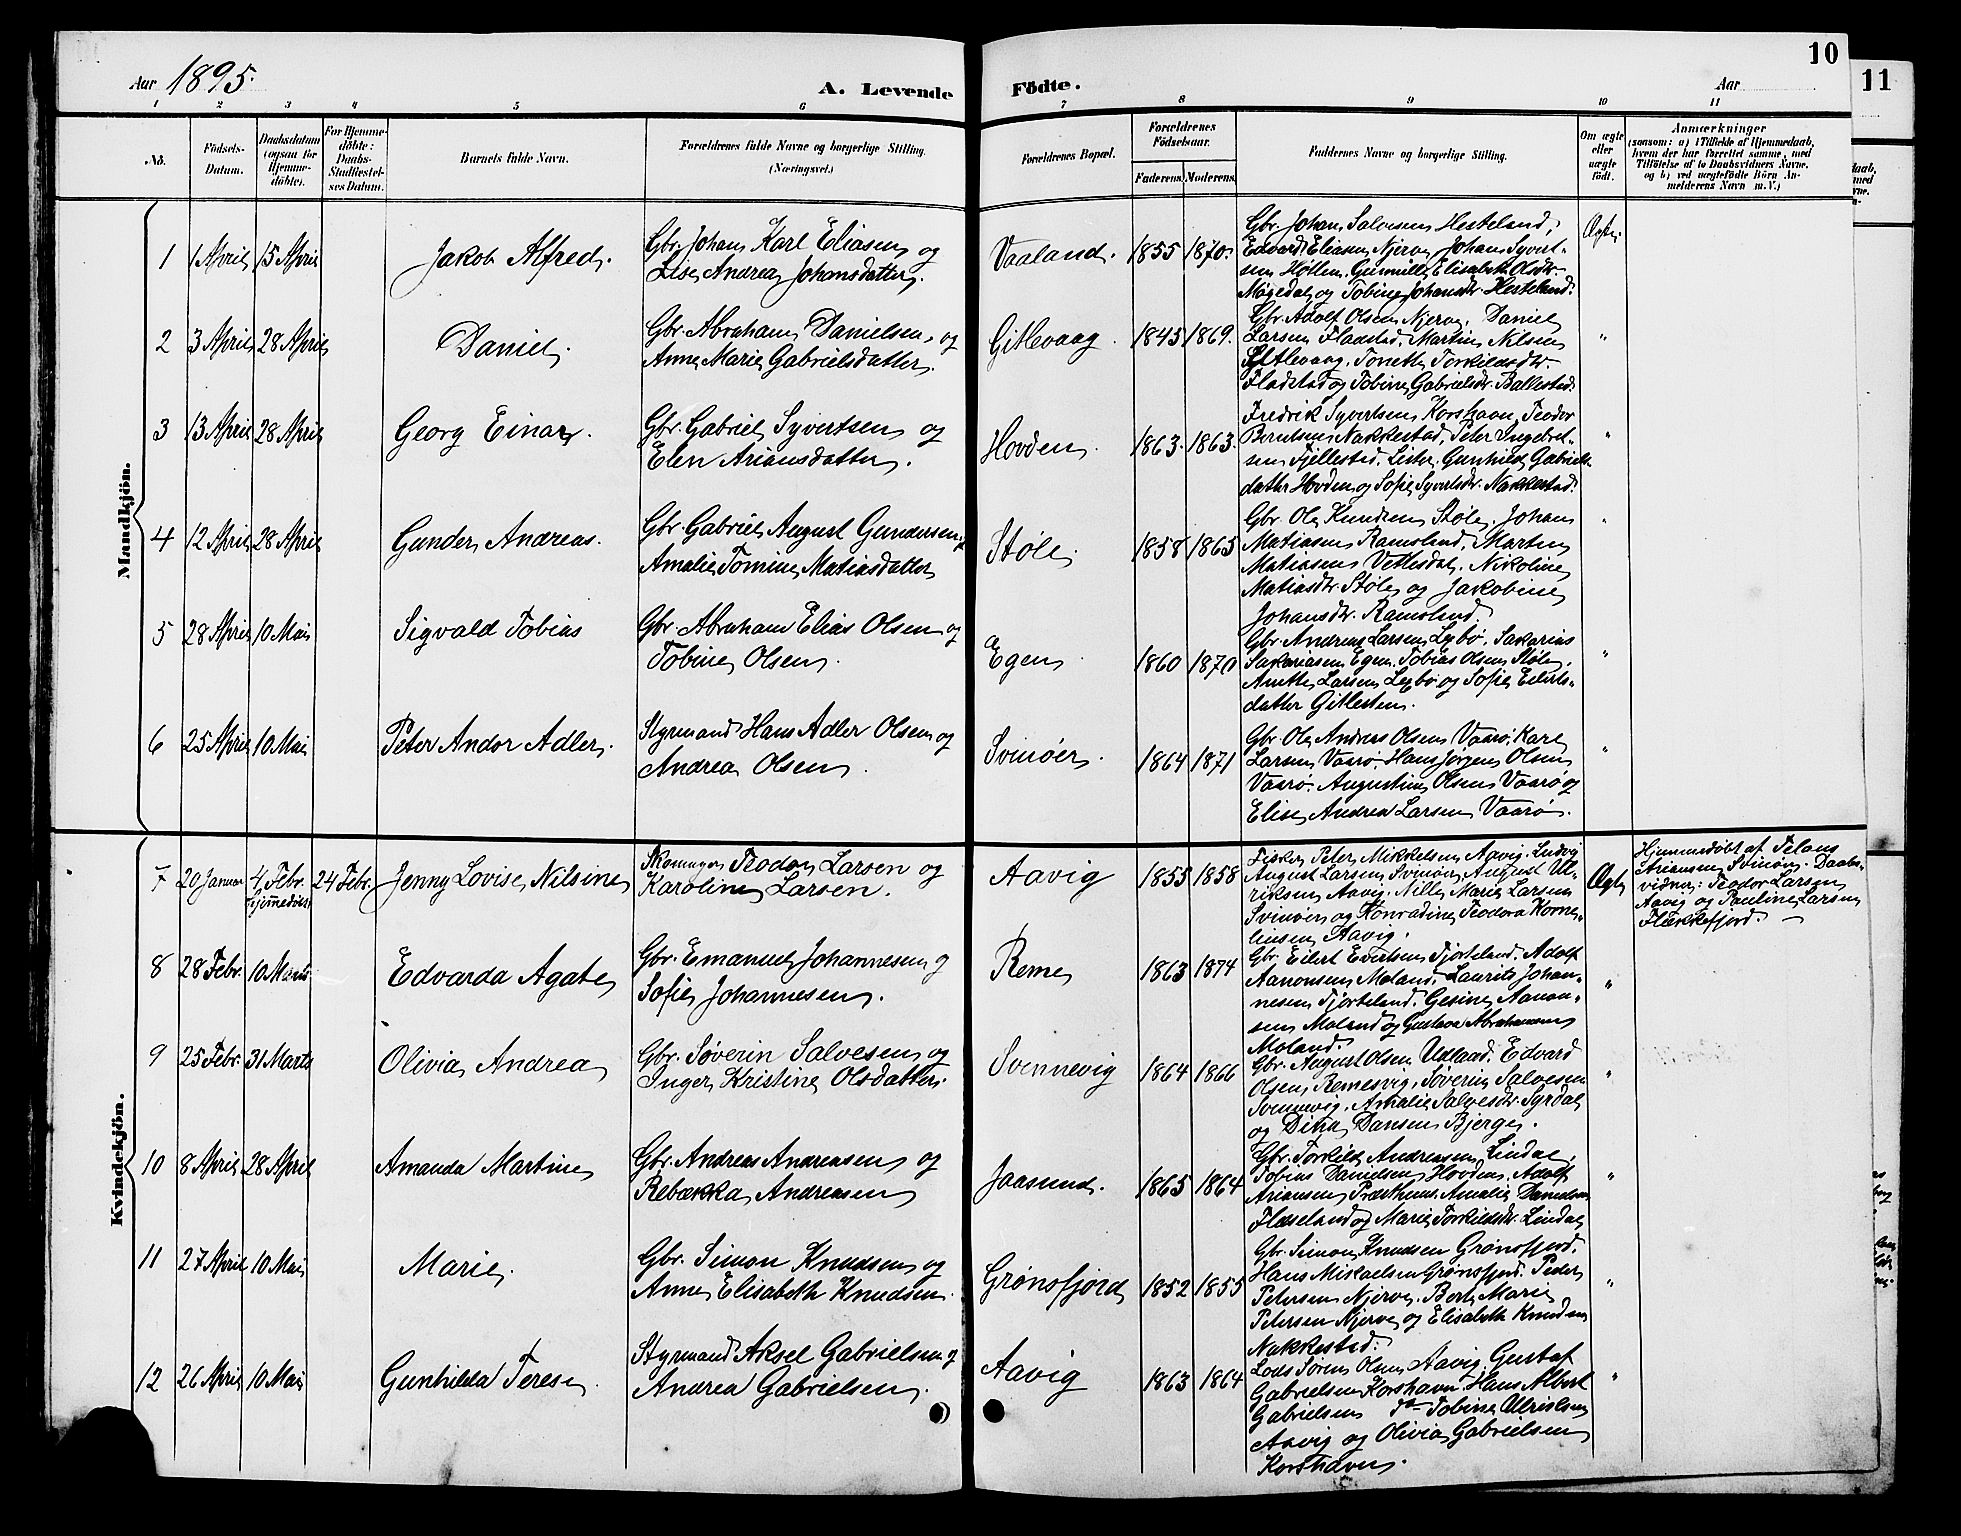 Aar 1895.
A. Levende Födte.
Aar
10
11
1 2 3 4 5 6 7 8 9 10 11
No.
Födsels-Datum.
Daabsdatum (ogsaa for Hjemme-döbte).
For Hjemme-döbte: Daabs-Stadfæstelses Datum.
Barnets fulde Navn.
Forældrenes fulde Navne og borgerlige Stilling. (Næringsvei.)
Forældrenes Bopæl.
Forældrenes Födselsaar.
Faderens. Moderens.
Faddernes Navne og borgerlige Stilling.
Om ægte eller uægte födt.
Anmærkninger
(saasom: a) i Tilfælde af Hjemmedaab,
hvem der har forrettet samme, med
Tilföielse af to Daabsvidners Navne,
og b) ved uægtefödte Börn An-
melderens Navn m. V.)
Mandkjön.
1 1 April 15 April Jakob Alfred. Gbr. Johan Karl Eliasen og
Lise Andrea Johansdatter. Vaaland. 1855 1870. Ægte.
Gbr. Johan Salvesen Hesteland,
Edvard Eliasen Njerve, Johan Syvert-
sen Høllen, Gunnille Elisabeth Olsdtr.
Møgedal og Tobine Johansdtr. Hesteland.
2 3 April 28 April Daniel. Gbr. Abraham Danielsen og
Anne Marie Gabrielsdatter. Gitlevaag. 1845 1869. "
Gbr. Adolf Olsen Njerve, Daniel
Larsen Fladstad, Martin Nilsen
Gitlevaag, Tonette Torkildsdtr.
Fladstad og Tobine Gabrielsdtr. Ballestad.
3 13 April 28 April Georg Einar. Gbr. Gabriel Syvertsen og
Elen Ariansdatter. Hovden. 1863. 1863. "
Fredrik Syvertsen Korshavn, Teodor
Berntsen Nakkestad, Peter Ingebret-
sen Fjellestad, Lister, Gunhilde Gabriels-
datter Hovden og Sofie Syvertsdtr. Nakkestad.
4 12 April 28 April Gunder Andreas. Gbr. Gabriel August Gundersen og
Amalie Tomine Matiasdatter Støle. 1858 1865 "
Gbr. Ole Knudsen Støle, Johan
Matiasen Ramslund, Martin
Matiasen Vetlesdal, Nikoline
Matiasdtr. Støle og Jakobine
Johansdtr. Ramslund.
5 28 April 10 Mai Sigvald Tobias Gbr. Abraham Elias Olsen og
Tobine Olsen. Egen. 1860 1870 "
Gbr. Andreas Larsen Lexbø, Sakarias
Sakariasen Egen, Tobias Olsen Støle,
Anette Larsen Lexbø og Sofie Eilerts-
datter Gitlesten.
6 25 April 10 Mai Peter Andor Adler. Styrmand Hans Adler Olsen og
Andrea Olsen. Svinøer. 1864 1871 "
Gbr. Ole Andreas Olsen Vaarø, Karl
Larsen Vaarø, Hans Jørgen Olsen
Vaarø, Augustine Olsen Vaarø og
Elise Andrea Larsen Vaarø.
Kvindekjön.
7 20 Januar 4 Febr. Hjemmedøbt 24 Febr. Jenny Lovise Nilsine Skomager Teodor Larsen og
Karoline Larsen. Aavig 1855 1858 Ægte
Fisker Peter Mikkelsen Aavig, Ludvig
August Larsen Svinøer, August Ul-
riksen Aavig, Nille Marie Larsen
Svinøer og Konradine Teodora Korne-
liusen Aavig.
Hjemmedøbt af Telans
Ariansen Svinøer. Daabs-
vidner: Teodor Larsen
Aavig og Pauline Larsen
Flekkefjord. –
8 28 Febr. 10 Marts Edvarda Agate Gbr. Emanuel Johannesen og
Sofie Johannesen. Reme 1863 1874 "
Gbr. Eilert Evertsen Fjorteland, Adolf
Aanonsen Moland, Laurits Johan-
nesen Fjorteland, Gesine Aanon-
sen Moland og Gustava Abrahamsen
Moland.
9 25 Febr. 31 Marts Olivia Andrea Gbr. Søverin Salvesen og
Inger Kristine Olsdatter. Svennevig 1864 1866 "
Gbr. August Olsen Udland, Edvard
Olsen Remesvig, Søverin Salvesen
Svennevig, Amalie Salvesdtr. Syrdal
og Dina Dansen Bjerge.
10 8 April 28 April Amanda Martine Gbr. Andreas Andreasen og
Rebækka Andreasen Jaasund. 1865 1864 "
Gbr. Torkild Andreasen Lindal,
Tobias Danielsen Hovden, Adolf
Ariansen Præsthus, Amalie Danielsen
Flaseland og Marie Torkildsdtr. Lindal
11 27 April 10 Mai Marie. Gbr. Simon Knudsen og
Anne Elisabeth Knudsen. Grønsfjord 1852 1855 "
Gbr. Simon Knudsen Grønsfjord,
Hans Mikaelsen Grønsfjord, Peder
Petersen Njerve, Berte Marie
Petersen Njerve og Elisabeth Knudsen
Nakkestad.
12 26 April 10 Mai Gunhilda Terese. Styrmand Aksel Gabrielsen og
Andrea Gabrielsen. Aavig 1863 1864 "
Lods Søren Olsen Aavig, Gustaf
Gabrielsen Korshavn, Hans Albert
Gabrielsen do Tobine Ulriksen
Aavig og Olivia Gabrielsen
Korshavn.